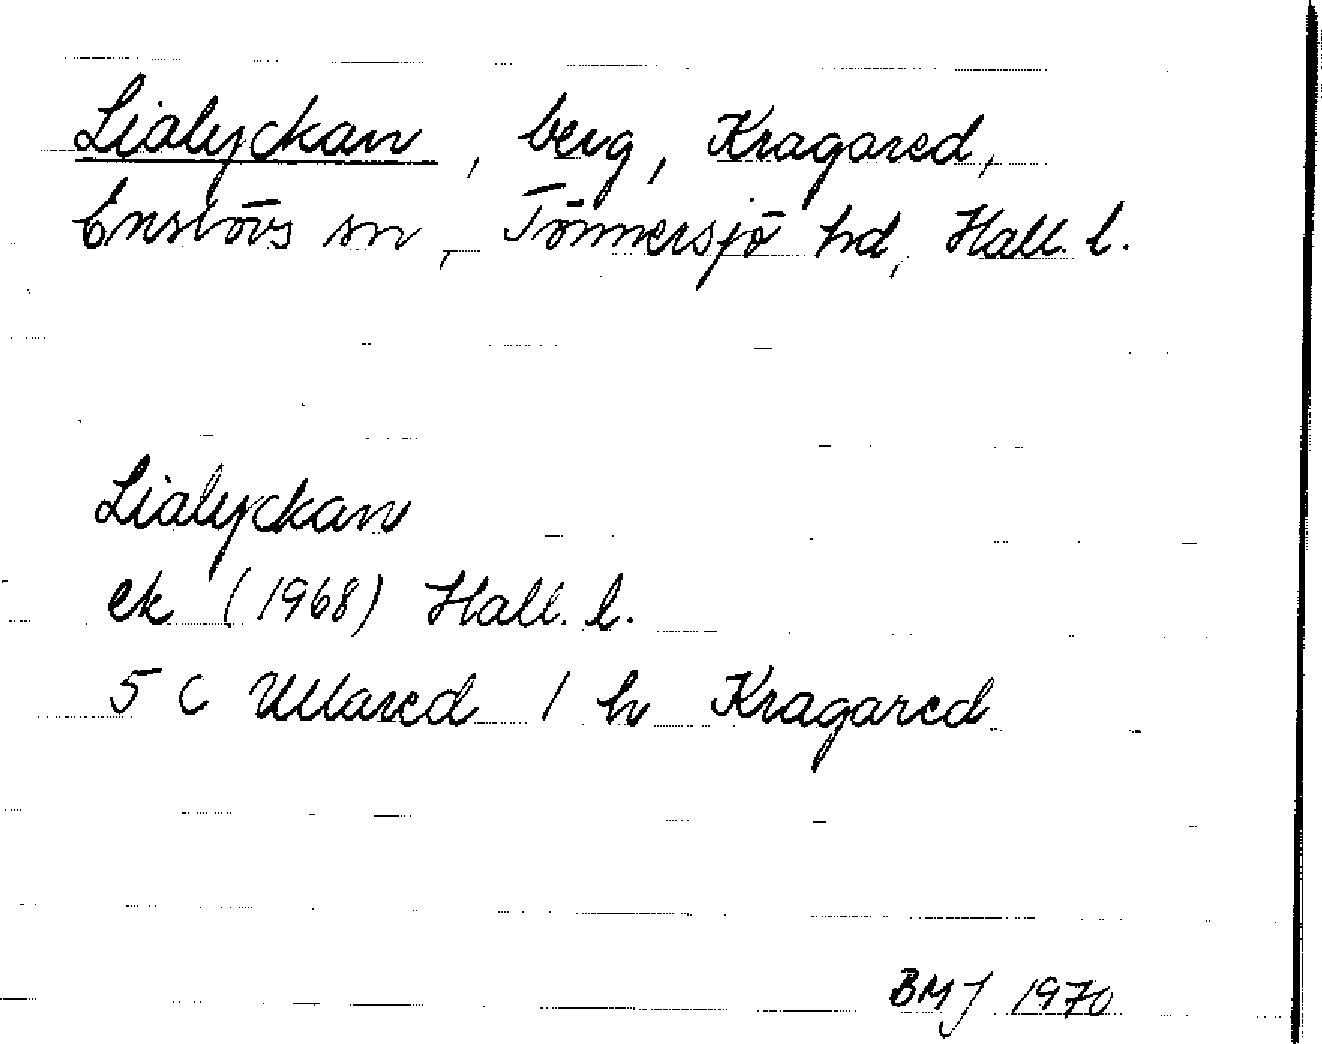 Lialyckan, berg, Kragared,
Enslövs sn, Tönnersjö hd, Hall. l.
Lialyckan
ek (1968) Hall. l.
5 C Ullared / h Kragared
BMJ 1970